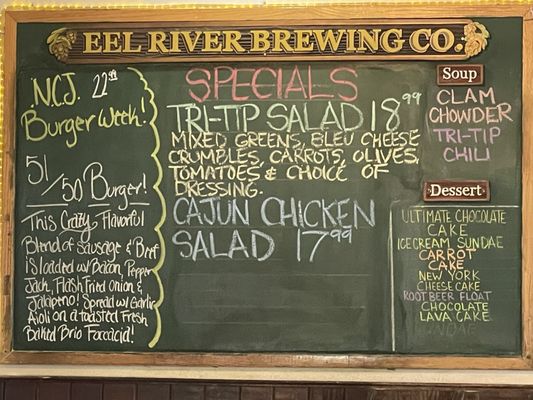 EEL RIVER BREWING CO.
N.C.J. 22nd
Burger Week!
51/50 Burger!
This Crazy, Flavorful
Blend of Sausage & Beef
is loaded w/ Bacon, Pepper
Jack, Flash Fried Onion &
Jalapeño! Spread w/ Garlic
Aioli on a toasted Fresh
Baked Brio Foccacia!
SPECIALS
TRI-TIP SALAD 18⁹⁹
MIXED GREENS, BLEU CHEESE
CRUMBLES, CARROTS, OLIVES,
TOMATOES & CHOICE OF
DRESSING.
CAJUN CHICKEN
SALAD 17⁹⁹
Soup
CLAM
CHOWDER
TRI-TIP
CHILI
Dessert
ULTIMATE CHOCOLATE
CAKE
ICE CREAM SUNDAE
CARROT
CAKE
NEW YORK
CHEESE CAKE
ROOT BEER FLOAT
CHOCOLATE
LAVA CAKE